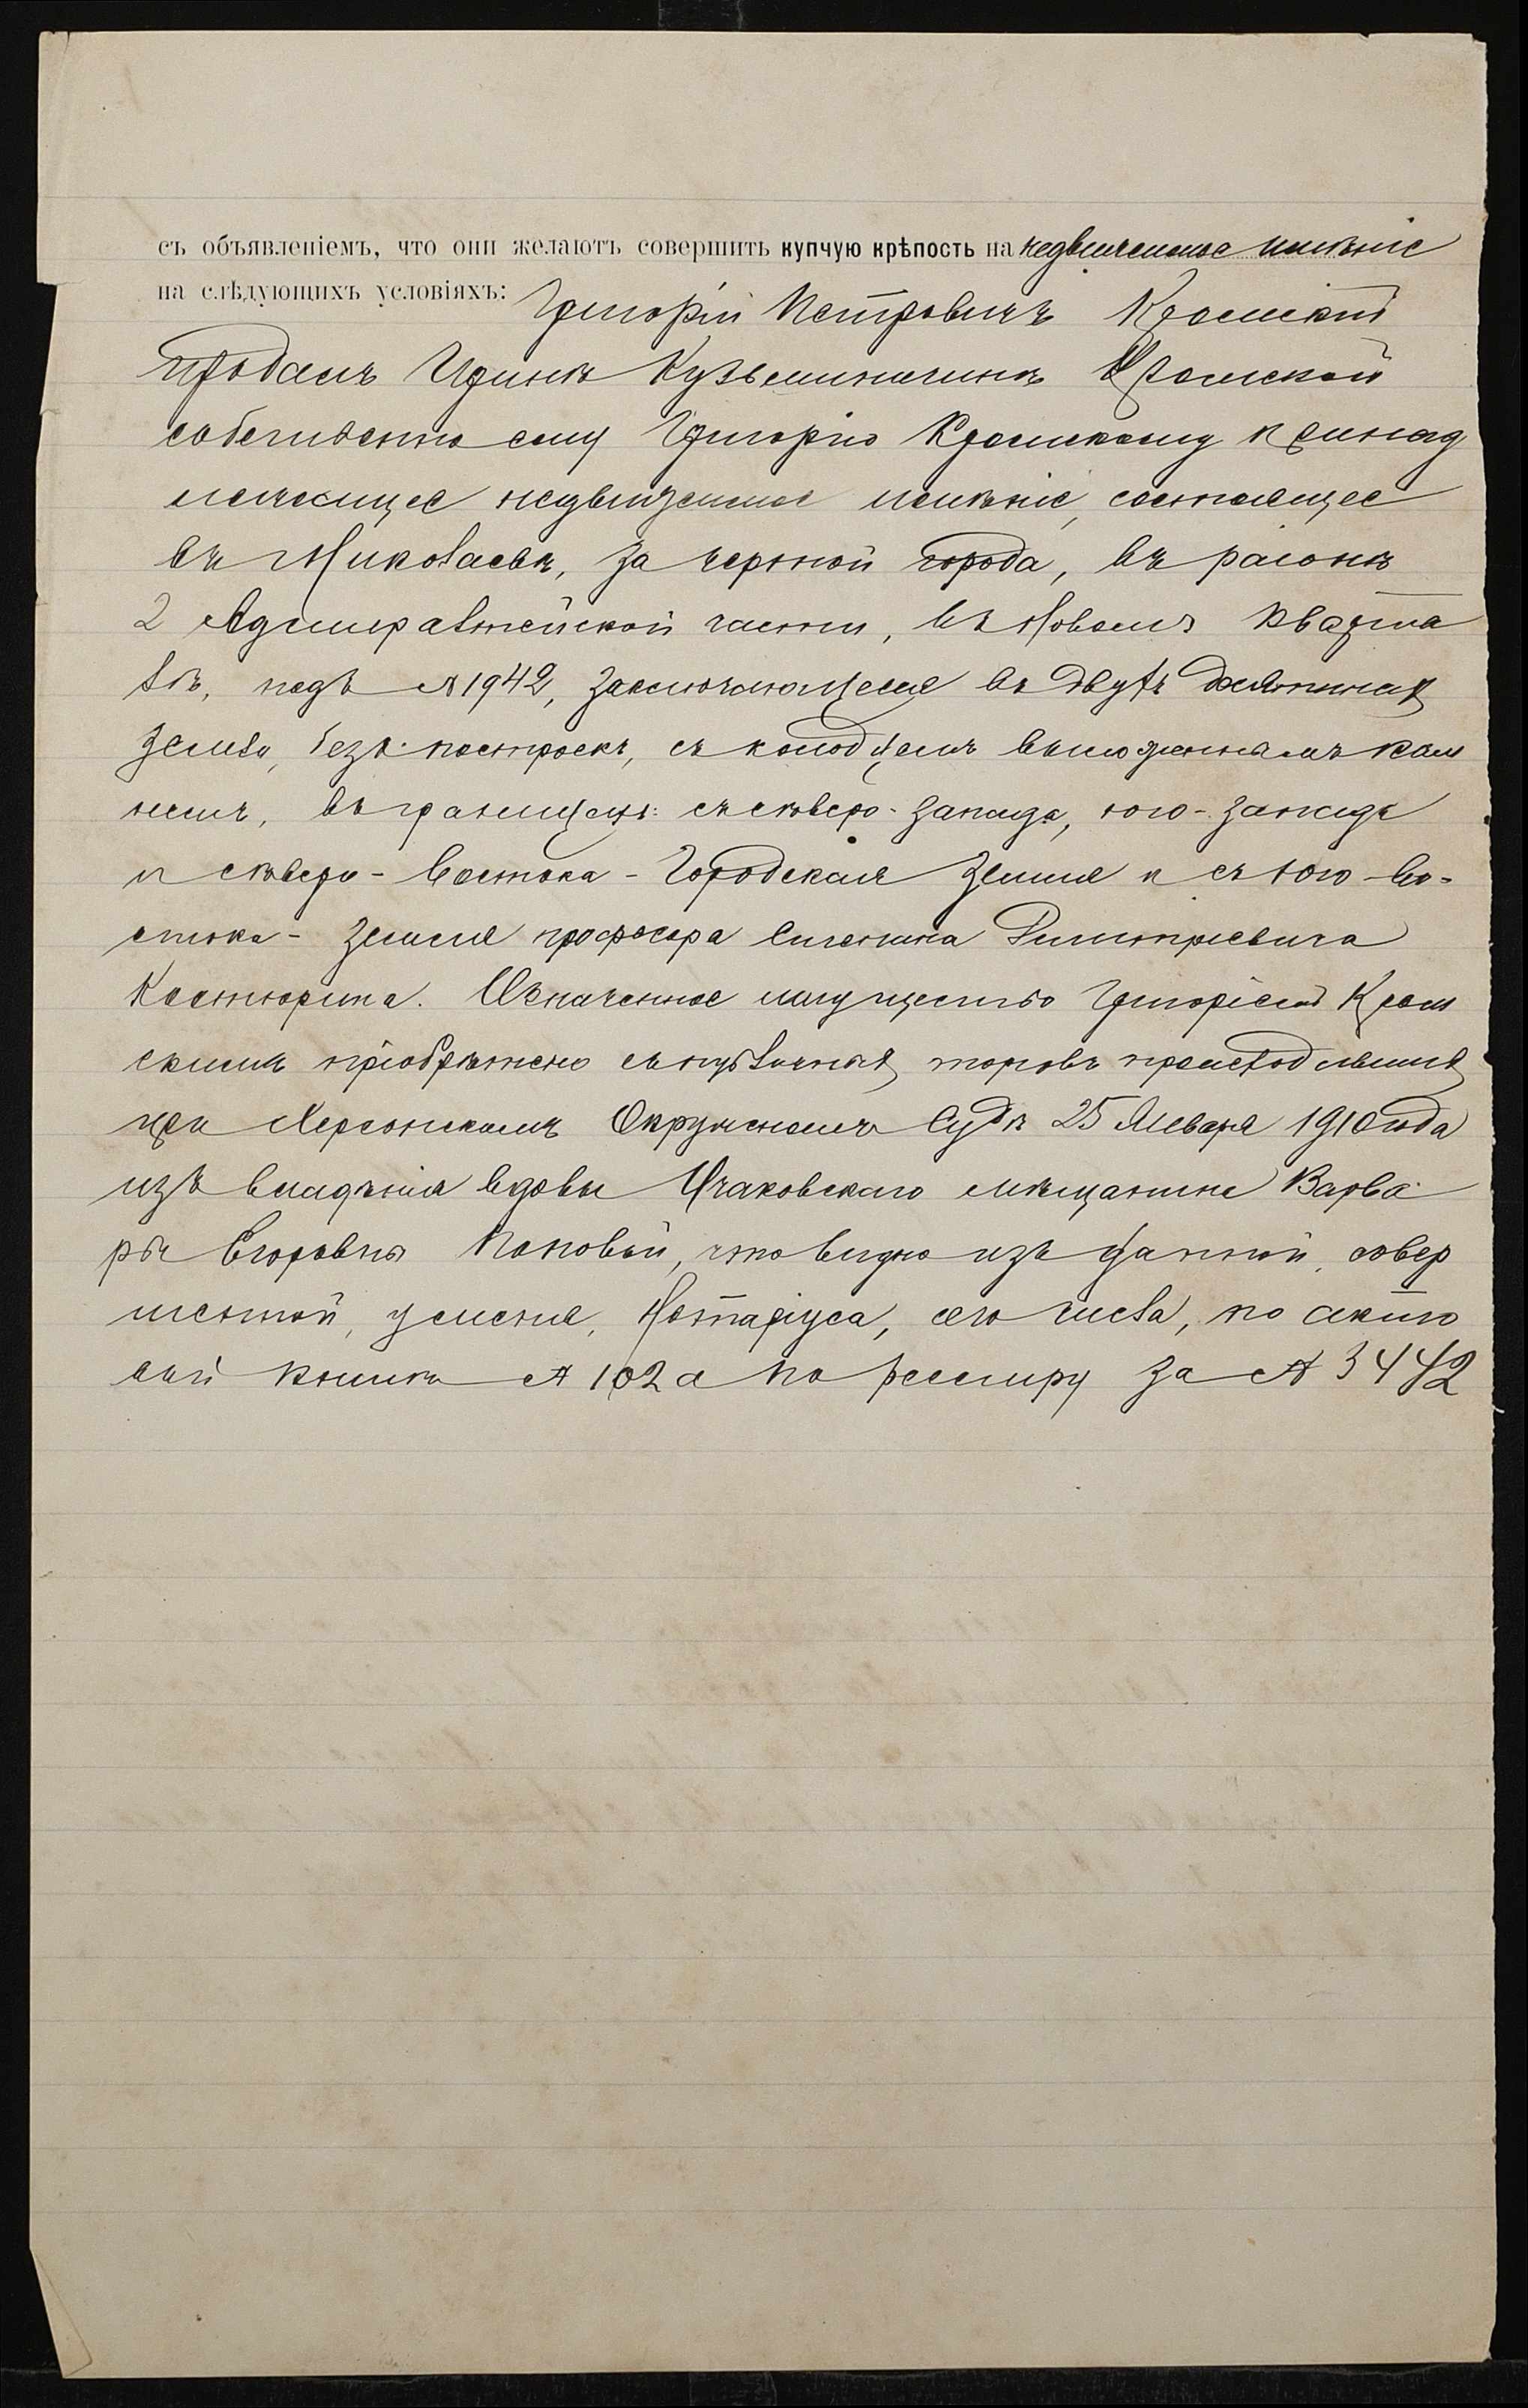 съ объявленіемъ, что они желаютъ совершить купчую крѣпость на недвижимое имѣніе
на слѣдующихъ условіяхъ: Григорій Петровичъ Кромскій
продалъ Иринѣ Кузьминичнѣ Кромской
собственно ему Григорію Кромскому принад
лежащее недвижимое имѣніе, состоящее
въ Николаевѣ, за чертой города, въ раіонѣ
2 Адмиралтейской части, въ Новомъ кварта
лѣ, подъ № 1942, заключающееся въ двухъ десятинахъ
земли, безъ построекъ, съ колодцемъ выложеннымъ кам
немъ, въ границахъ: съ сѣверо-запада, юго-запада
и сѣверо-востока - Городская земля и съ юго-во-
стока - земля профессора Дмитріевича
Костюрина. Означенное имущество Григоріемъ Кром
скимъ пріобрѣтено съ публичныхъ торговъ происходившихъ
при Херсонскомъ Окружномъ Судѣ 25 Января 1910 года
изъ владѣнія вдовы Очаковскаго мѣщанина Варва
ры Егоровны Поповой, что видно изъ данной, совер
шенной, у меня, Нотаріуса, сего числа, по актно
вой книгѣ № 102 а по реестру за № 3442